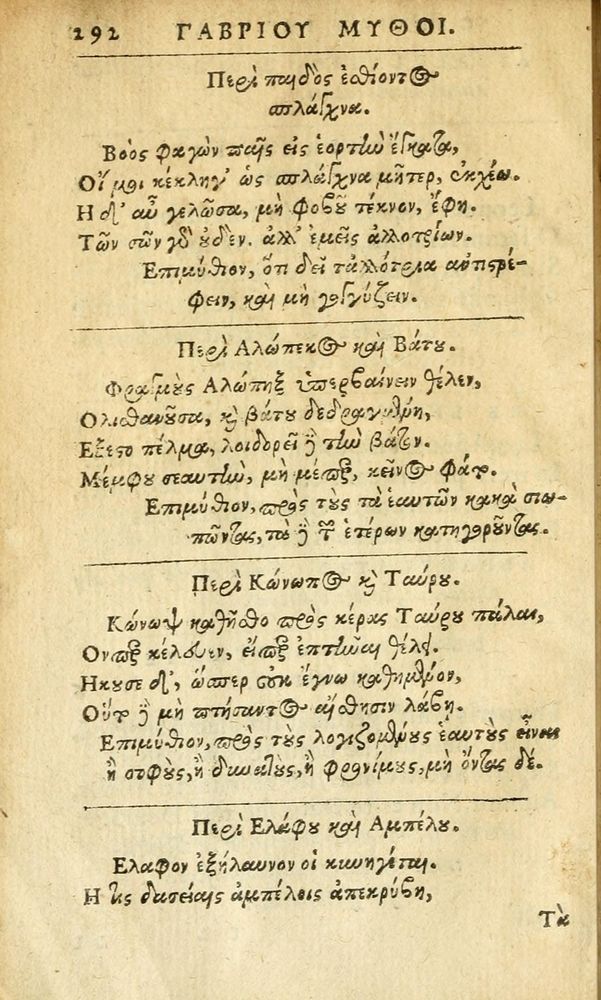 292 ΓΑΒΡΙΟΥ ΜΥΘΟΙ.
Περὶ παιδὸς ἐσθίοντος
σπλάγχνα.
Βοὸς φαγὼν παῖς εἰς ἑορτὴν ἔγκατα,
Οἴ μοι κέκληγ' ὡς σπλάγχνα μῆτερ, ἐκχέω.
Η δ' αὖ γελῶσα, μὴ φοβοῦ τέκνον, ἔφη.
Τῶν σῶν γὰρ οὐδεν. ἀλλ' ἐμεῖς ἀλλοτρίων.
Επιμύθιον, ὅτι δεῖ τἀλλότρια
φειν, καὶ μὴ γογγύζειν.
Περὶ Αλώπεκος καὶ Βάτου.
Φραγμοὺς Αλώπηξ ὑπερβαίνειν θέλεν,
Ολισθανοῦσα, καὶ βάτου δεδραγμένη,
Εξεσο πέλμα, λοιδορεῖ δὲ τὴν βάτον.
Μέμφου σεαυτὴν, μὴ μέ περ, κεῖνος φάτο.
Επιμύθιον, πρὸς τοὺς τὰ ἑαυτῶν κακὰ σιω-
πῶντας, τὰ δὲ τῶν ἑτέρων κατηγοροῦντας.
Περὶ Κώνωπος καὶ Ταύρου.
Κώνωψ καθῆστο πρὸς κέρας Ταύρου πάλαι,
Ονπερ κέλευεν, εἴπερ ἐπτῆναι θέλει.
Ηκουσε δ', ὥσπερ οὐκ ἔγνω καθημένον,
Οὕτω δὲ μὴ πτήσαντος αἴσθησιν λάβῃ.
Επιμύθιον, πρὸς τοὺς λογιζομένους ἑαυτοὺς εἶναι
ἢ σοφοὺς, ἢ δικαίους, ἢ φρονίμους, μὴ ὄντας δέ.
Περὶ Ελάφου καὶ Αμπέλου.
Ελαφον ἐξήλαυνον οἱ κυνηγέται.
Η τις δασείαις ἀμπέλοις ἀπεκρύβη,
Τὰ